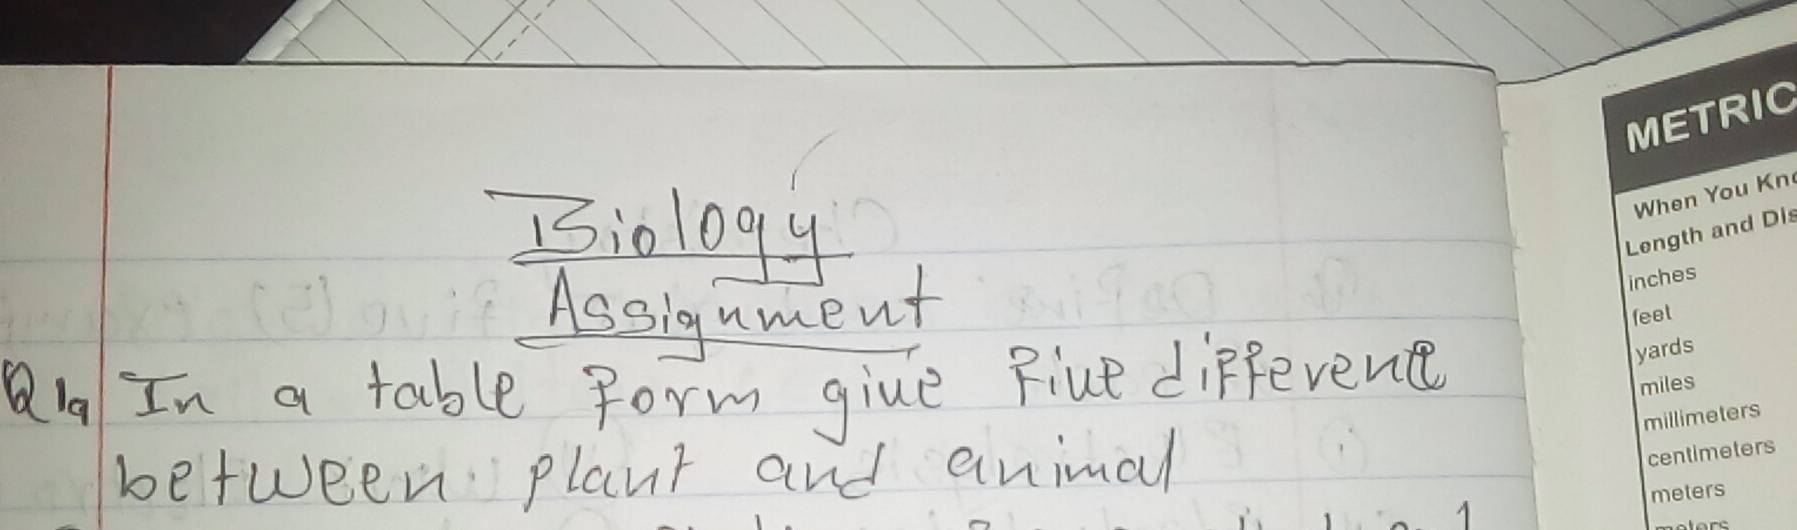 Biology
Assignment
Q1a In a table form give five different
between plant and animal
METRIC
When You
Length and
inches
feet
yards
miles
millimeters
centimeters
meters